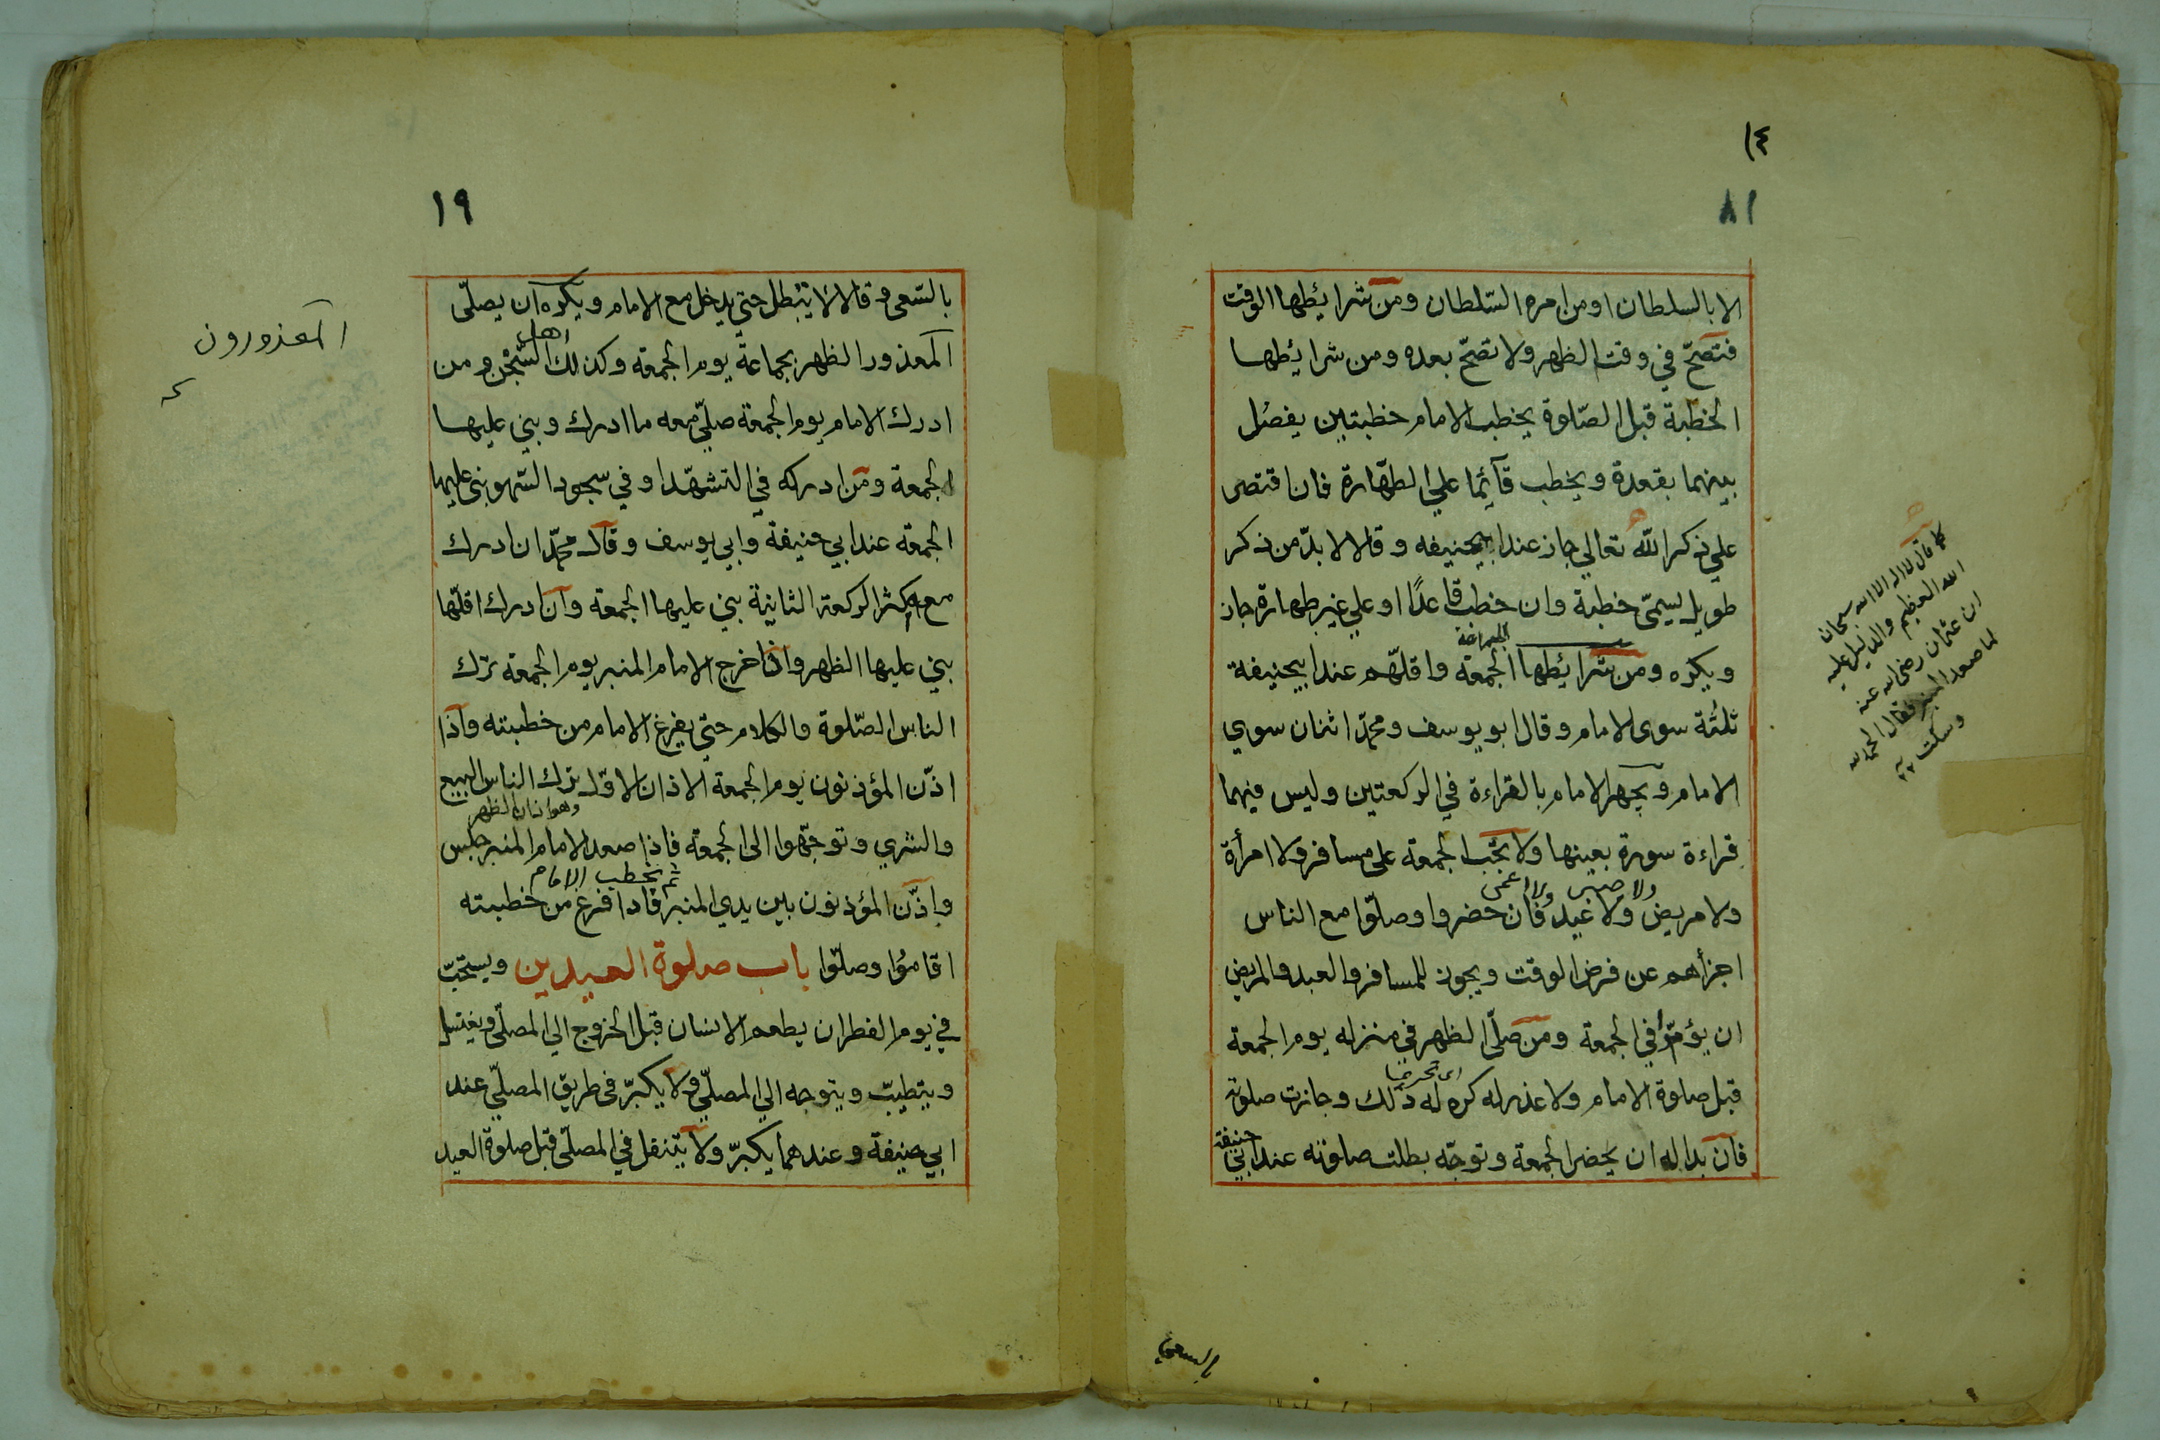 ١٤
١٨
الا بالسلطان او من امره السّلطان ومن شرائطها الوقت
فتصحّ في وقت الظهر ولا تصحّ بعده ومن شرائطها
الخطبة قبل الصّلوة يخطب الامام خطبتين يفصُل
بينهما بقعدة ويخطب قآئمًا علي الطّهارة فان اقتصر
علي ذكر الله تعالي جاز عند ابيحنيفه وقالا لا بدّ من ذكر
طويل يسمّي خطبة وان خطب قاعدًا او علي غير طهارة جاز
ويكره ومن شرائطها الجمعة واقلّهم عند ابيحنيفة
الجماعة
ثلثة سوى الامام وقال ابو يوسف ومحمّد اثنان سوي
الامام ويجهر الامام بالقراءة في الركعتين وليس فيهما
قراءة سورة بعينها ولا تجب الجمعة على مسافر ولا امرأة
ولا صبي ولا اعمى
ولا مريض ولا عبد فان حضروا وصلّوا مع الناس
اجزأهم عن فرض الوقت ويجوز للمسافر والعبد والمريض
ان يؤمّوا في الجمعة ومن صلّى الظهر في منزله يوم الجمعة
اى تحريما
قبل صلوة الامام ولا عذر له كره له ذلك وجازت صلوته
فان بدا له ان يحضر الجمعة وتوجّه بطلت صلوته عند ابي حنيفة
كما قال لا اله الا الله سبحان
الله العظيم والدليل عليه
ان عثمان رضي الله عنه
لما صعد المنبر فقال الحمد لله
وسكت
بالسعي
١٩
بالسّعي وقالا لا تبطل حتي يدخل مع الامام ويكره ان يصلّى
اهل
المعذور الظهر بجماعة يوم الجمعة وكذلك السّجن ومن
ادرك الامام يوم الجمعة صلّي معه ما ادرك وبني عليها
الجمعة ومن ادركه في التشهّد او في سجود السّهو بنى عليها
الجمعة عند ابي حنيفة وابي يوسف وقال محمّد ان ادرك
معه اكثر الركعة الثانية بني عليها الجمعة وان ادرك اقلّها
بني عليها الظهر واذا خرج الامام المنبر يوم الجمعة ترك
الناس الصّلوة والكلام حتي يفرغ الامام من خطبته واذا
اذّن المؤذنون يوم الجمعة الاذان الاوّل ترك الناس البيع
وهو اذان الظهر
والشري وتوجّهوا الى الجمعة فاذا صعد الامام المنبر جلس
ثم يخطب الامام
واذّن المؤذنون بين يدي المنبر فاذا فرغ من خطبته
اقاموُا وصلّوا باب صلوة العيدين ويستحبّ
في يوم الفطر ان يطعم الانسان قبل الخروج الي المصلّى ويغتسل
ويتطيبّ ويتوجه الي المصلّي ولا يكبّر في طريق المصلّي عند
ابي حنيفة وعندهما يكبّر ولا يتنفل في المصلّى قبل صلوة العيد
المعذورون